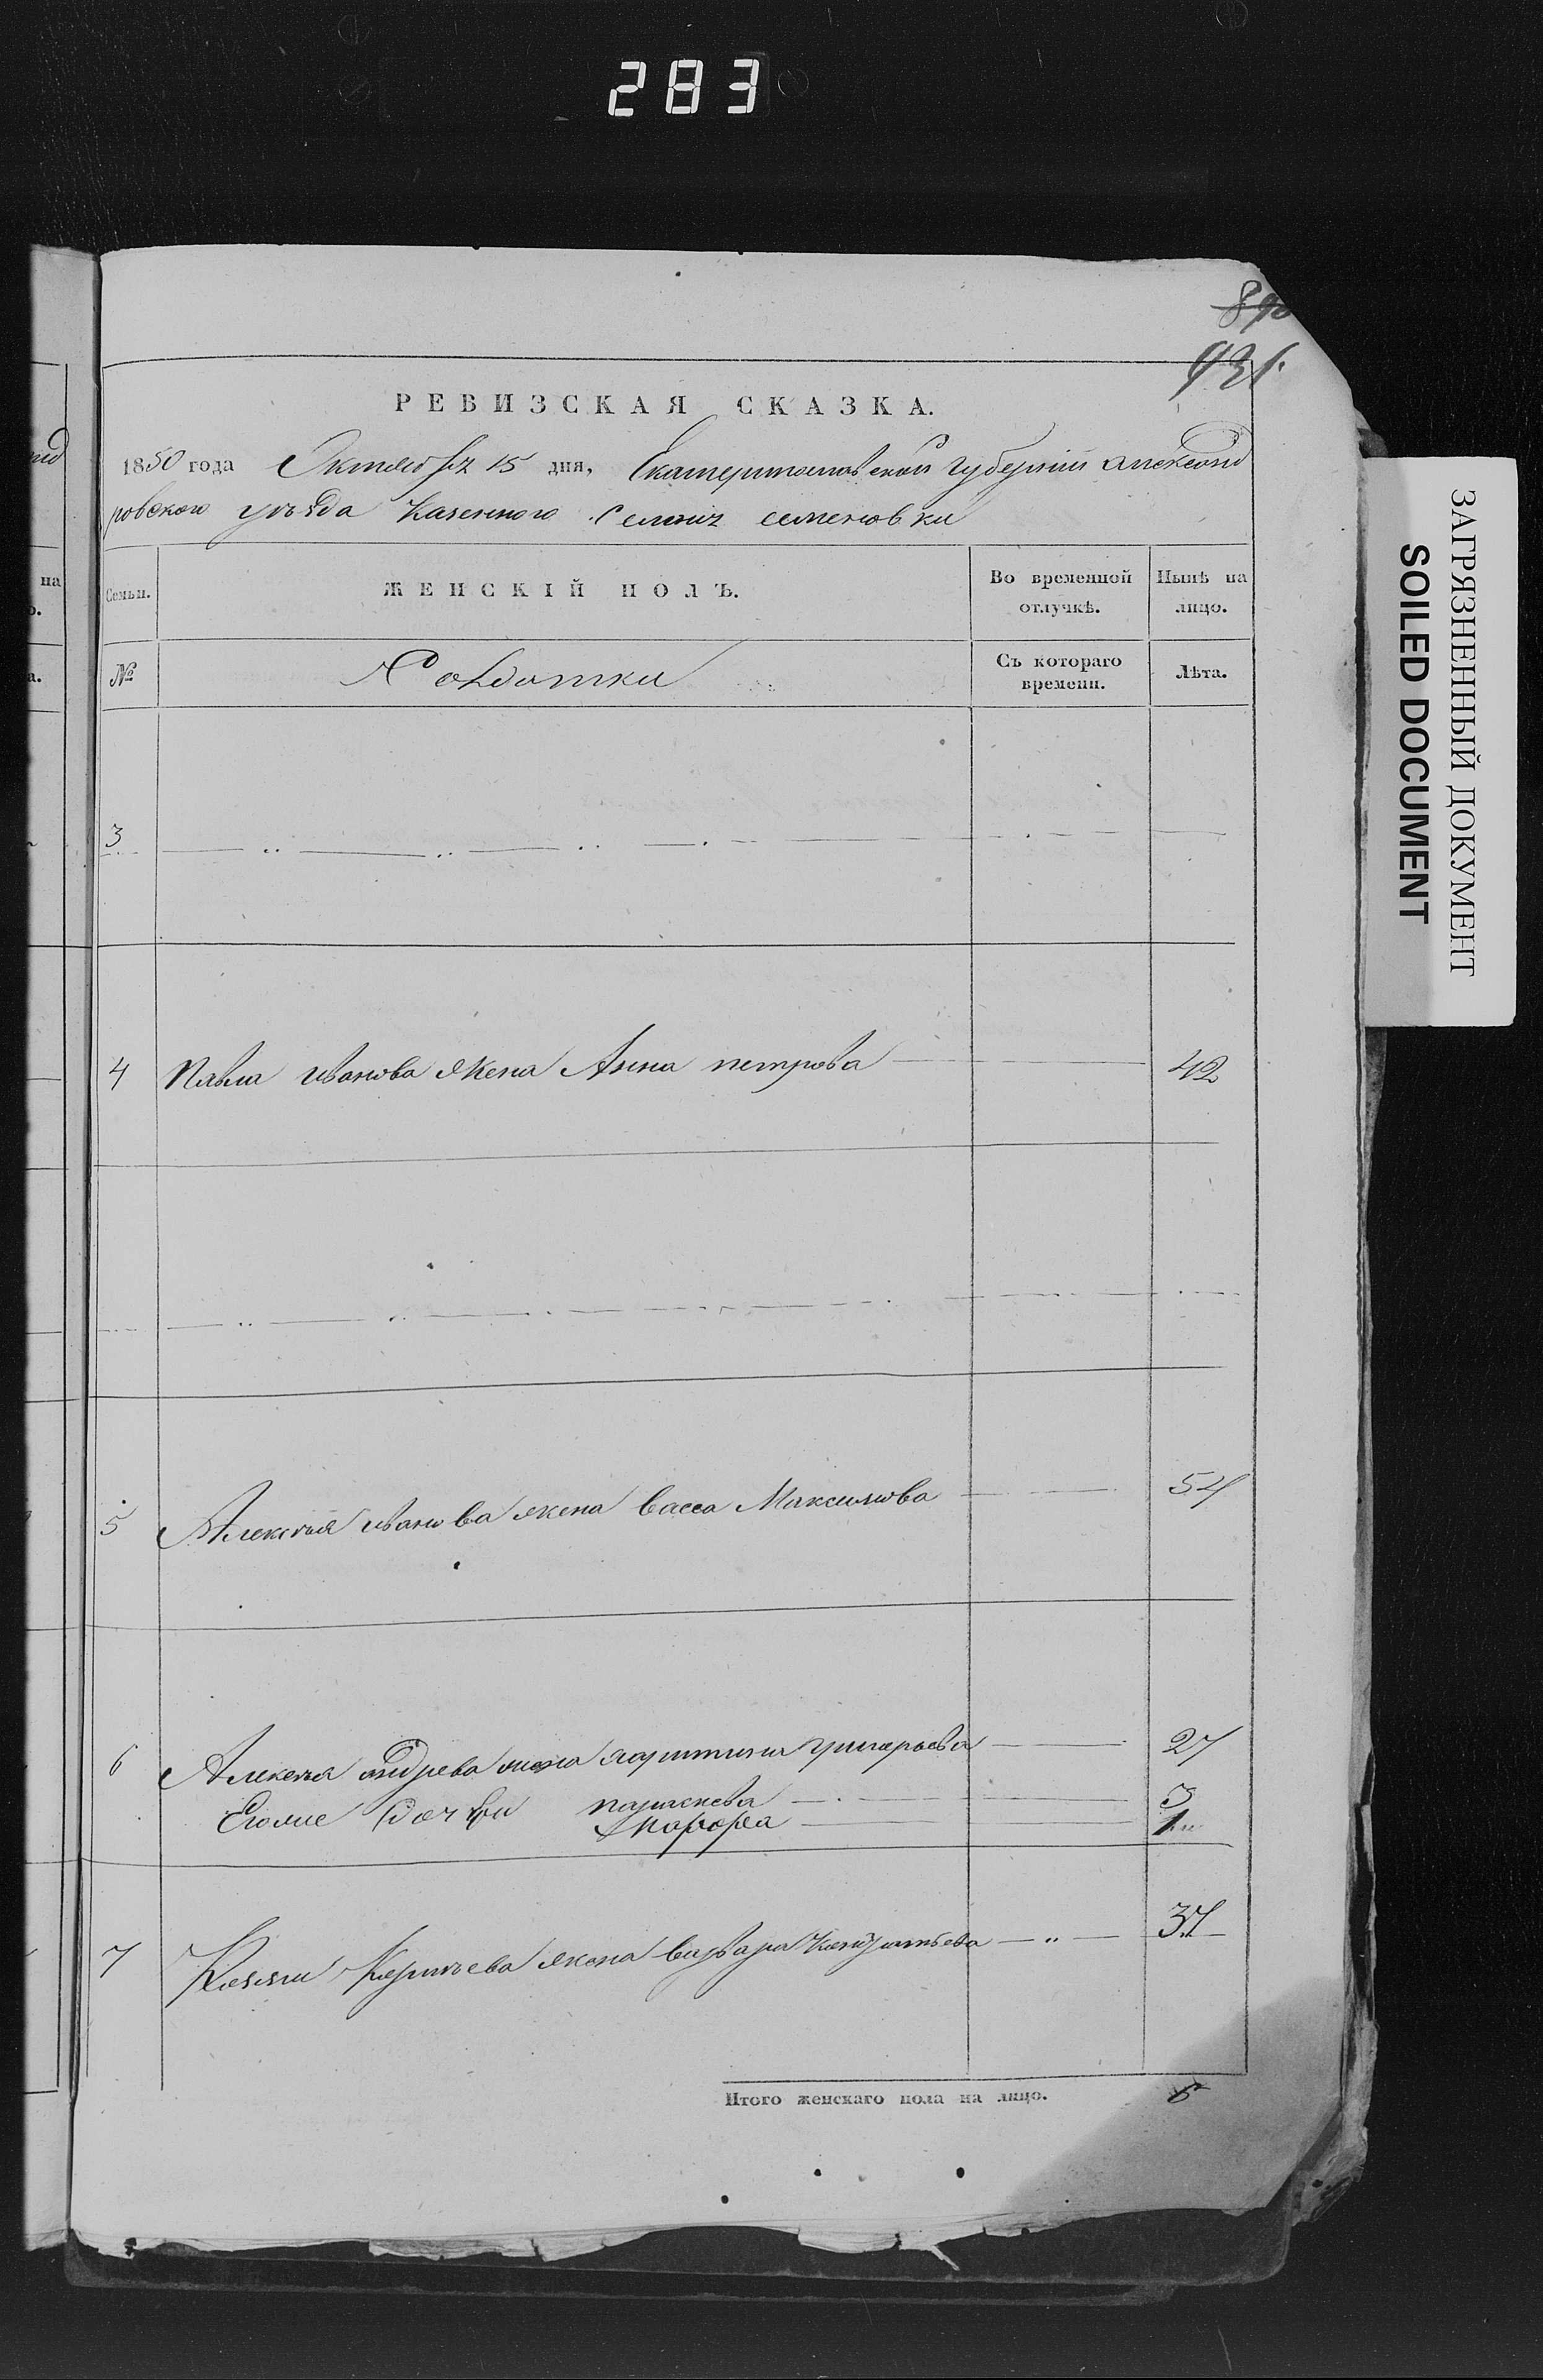 283
890
931.
РЕВИЗСКАЯ СКАЗКА.
1850 года Октября 15 дня, Екатеринославской губернии александ
ровского уѣзда казенного Селения семеновки
Семьи.
ЖЕНСКІЙ ПОЛЪ.
Во временной отлучкѣ.
Нынѣ на лицо.
№
Солдатки
Съ котораго времени.
Лѣта.
3
4 Павла иванова жена Анна петрова 42
5 Алексѣя иванова жена васса Максимова 54
6 Алексѣя андрева жена григорьева 27
Еголие дочери параскева 3
1
7 Козмы жена варвара кондратьева 37
Итого женскаго пола на лицо. 6
на
ЗАГРЯЗНЕННЫЙ ДОКУМЕНТ
SOILED DOCUMENT